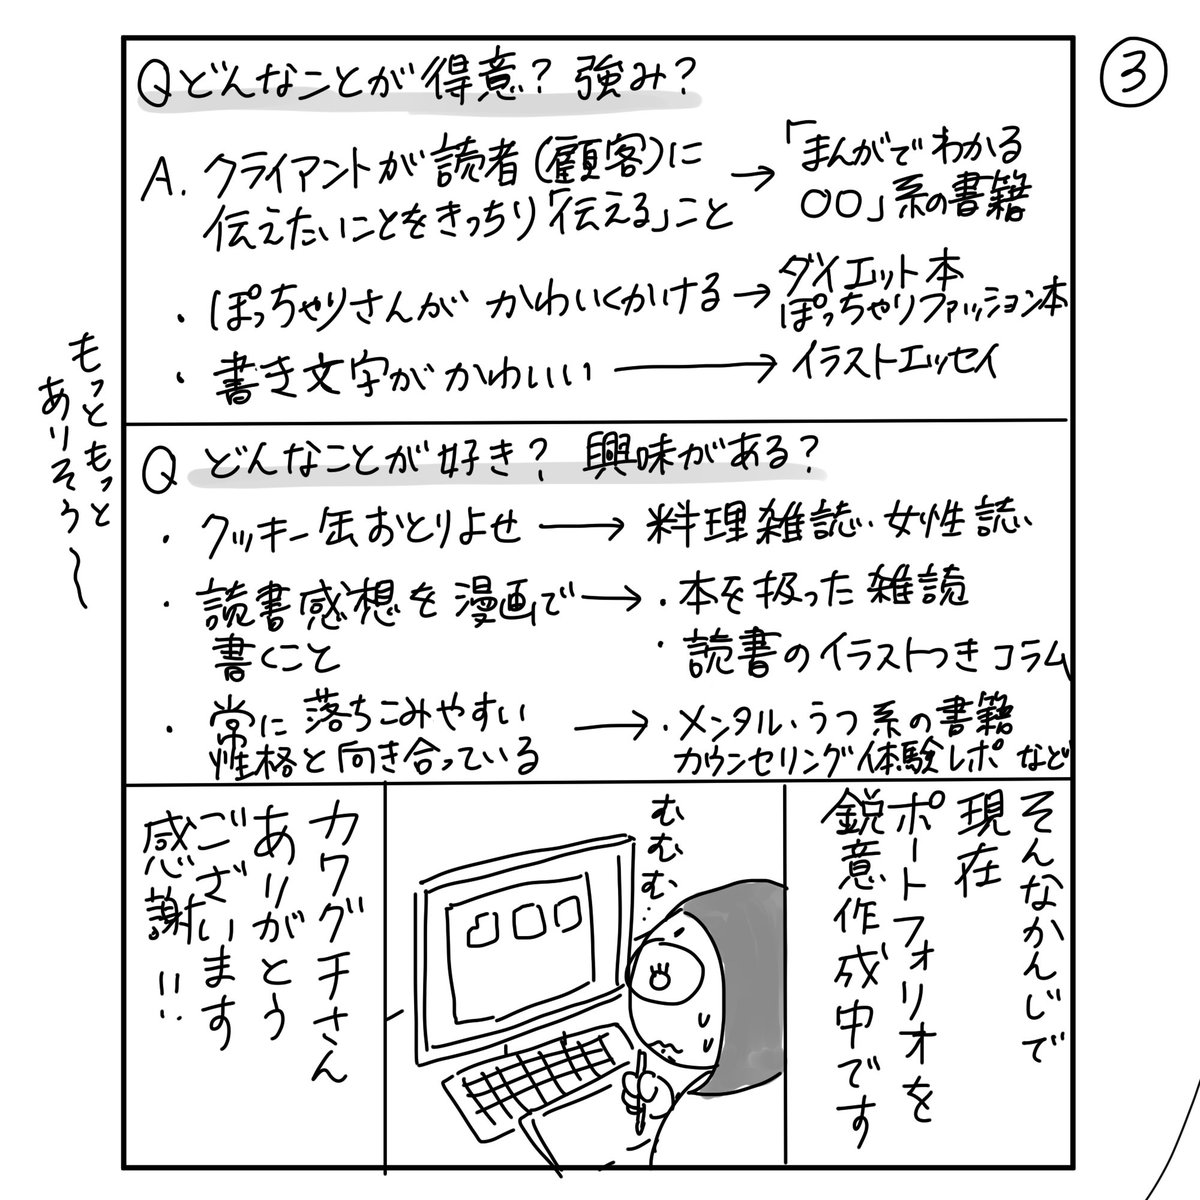 ③
Qどんなことが得意?強み?
A.クライアントが読者(顧客)に
伝えたいことをきっちり「伝える」こと
→「まんがでわかる
〇〇」系の書籍
・ぽっちゃりさんが かわいくかける→ダイエット本
ぽっちゃりファッション本
・書き文字がかわいい→イラストエッセイ
もっともっと
ありそう〜
Q どんなことが好き? 興味がある?
・クッキー缶おとりよせ→料理雑誌・女性誌
・読書感想を漫画で
書くこと
→・本を扱った雑読
・読書のイラストつきコラム
・常に落ちこみやすい
性格と向き合っている
→・メンタル・うつ系の書籍
カウンセリング体験レポなど
そんなかんじで
現在
ポートフォリオを
鋭意作成中です
むむむ…
カワグチさん
ありがとう
ございます
感謝!!